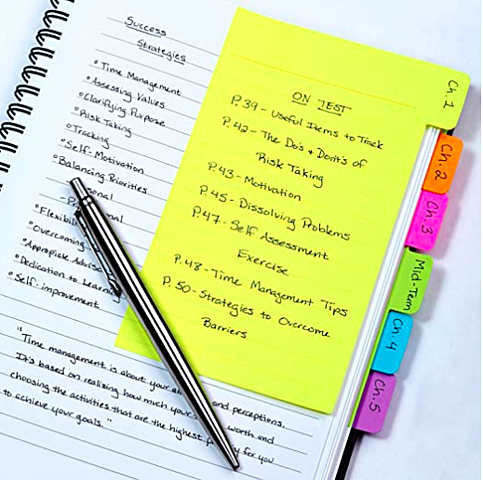 Success
Strategies
• Time Management
• Assessing Values
• Clarifying Purpose
• Risk Taking
• Tracking
• Self-Motivation
• Balancing Priorities
• Flexibi
• Overcoming
• Appropiate Adviso
• Dedication to Learning
• Self-improvement
"Time management is about your and perceptions.
It's based on realizing how much your worth and
choosing the activities that are the highest for you
to achieve your goals."
ON TEST
P. 39 - Useful Items to Track
P. 42 - The Do's & Dont's of
Risk Taking
P. 43 - Motivation
P. 45 - Dissolving Problems
P. 47 - Self Assessment
Exercise
P. 48 - Time Management Tips
P. 50 - Strategies to Overcome
Barriers
Ch. 1
Ch. 2
Ch. 3
Mid-Term
Ch. 4
Ch. 5